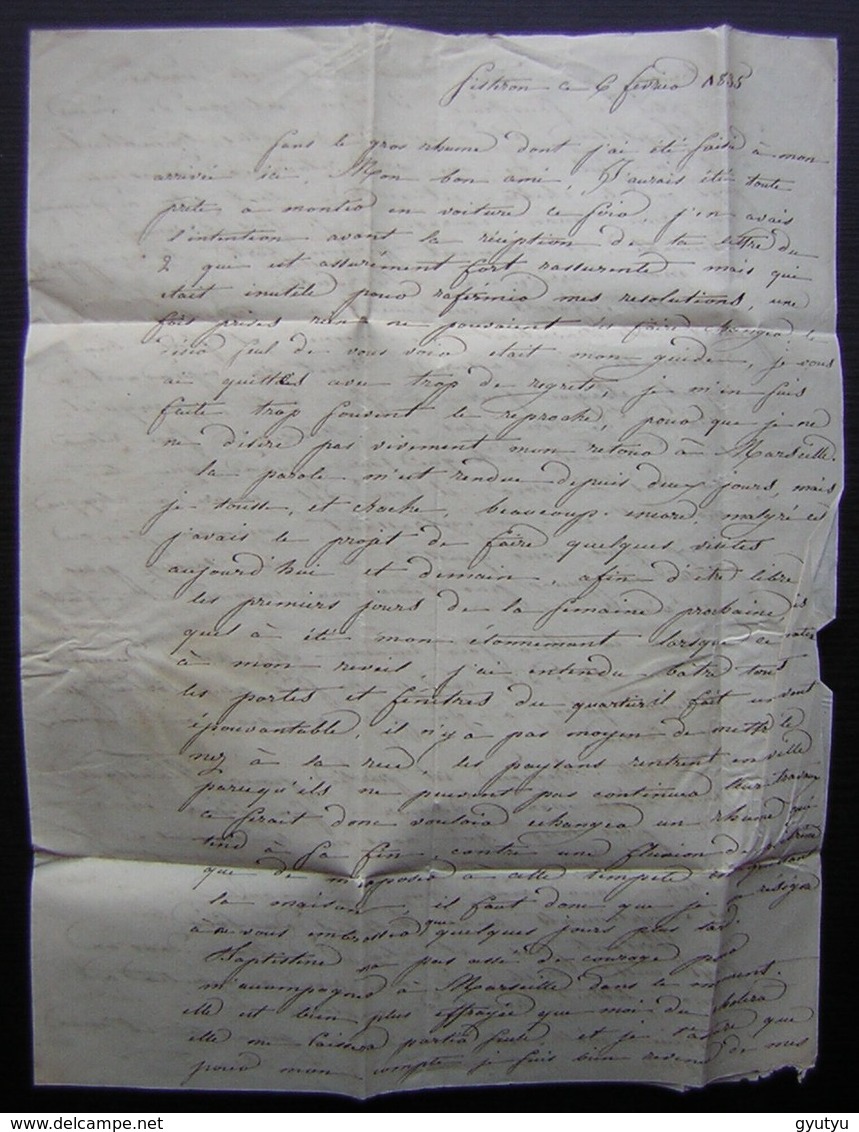 Sisteron ce 6 février 1835
Sans le gros rhume dont j'ai été saisie à mon
arrivée ici, Mon bon ami, J'aurais été toute
prete à monter en voiture ce soir, j'en avais
l'intention avant la réception de ta lettre du
2 qui est assurément fort rassurente mais qui
etait inutile pour rafermir mes resolutions, une
fois prises rien ne pouvaient les faire changer, le
désir seul de vous voir etait mon guide, je vous
ai quittés avec trop de regrets, je m'en suis
faite trop souvent le reproche, pour que je ne
ne désire pas vivement mon retour à Marseille.
la parole m'est rendue depuis deux jours, mais
je tousse, et crache, beaucoup encore, malgré ces
j'avais le projet de faire quelques visites
aujourd'hui et demain, afin d'être libre
les premiers jours de la semaine prochaine,
quel à été mon étonnement lorsque ce
à mon reveil, j'ai entendu batre tous
les portes et fénêtres du quartier il fait un vent
épouvantable, il n'y à pas moyen de mettre le
nez à la rue, les paysans rentrent en ville
parcequ'ils ne peuvent pas continuer leur travaux
ce serait donc vouloir échanger un rhume qui
tend à sa fin contre une fluxion de poitrine
que de m'exposer à cette tempete en quittant
la maison, il faut donc que je me résigne
à ne vous embrasser que quelques jours plus tard.
Baptistine na pas assé de courage pour
m'accompagner à Marseille dans le moment.
elle est bien plus effrayée que moi du cholera
elle me laissera partir seule, et je t'assure que
pour mon compte je suis bien revenue de mes
gyutyu